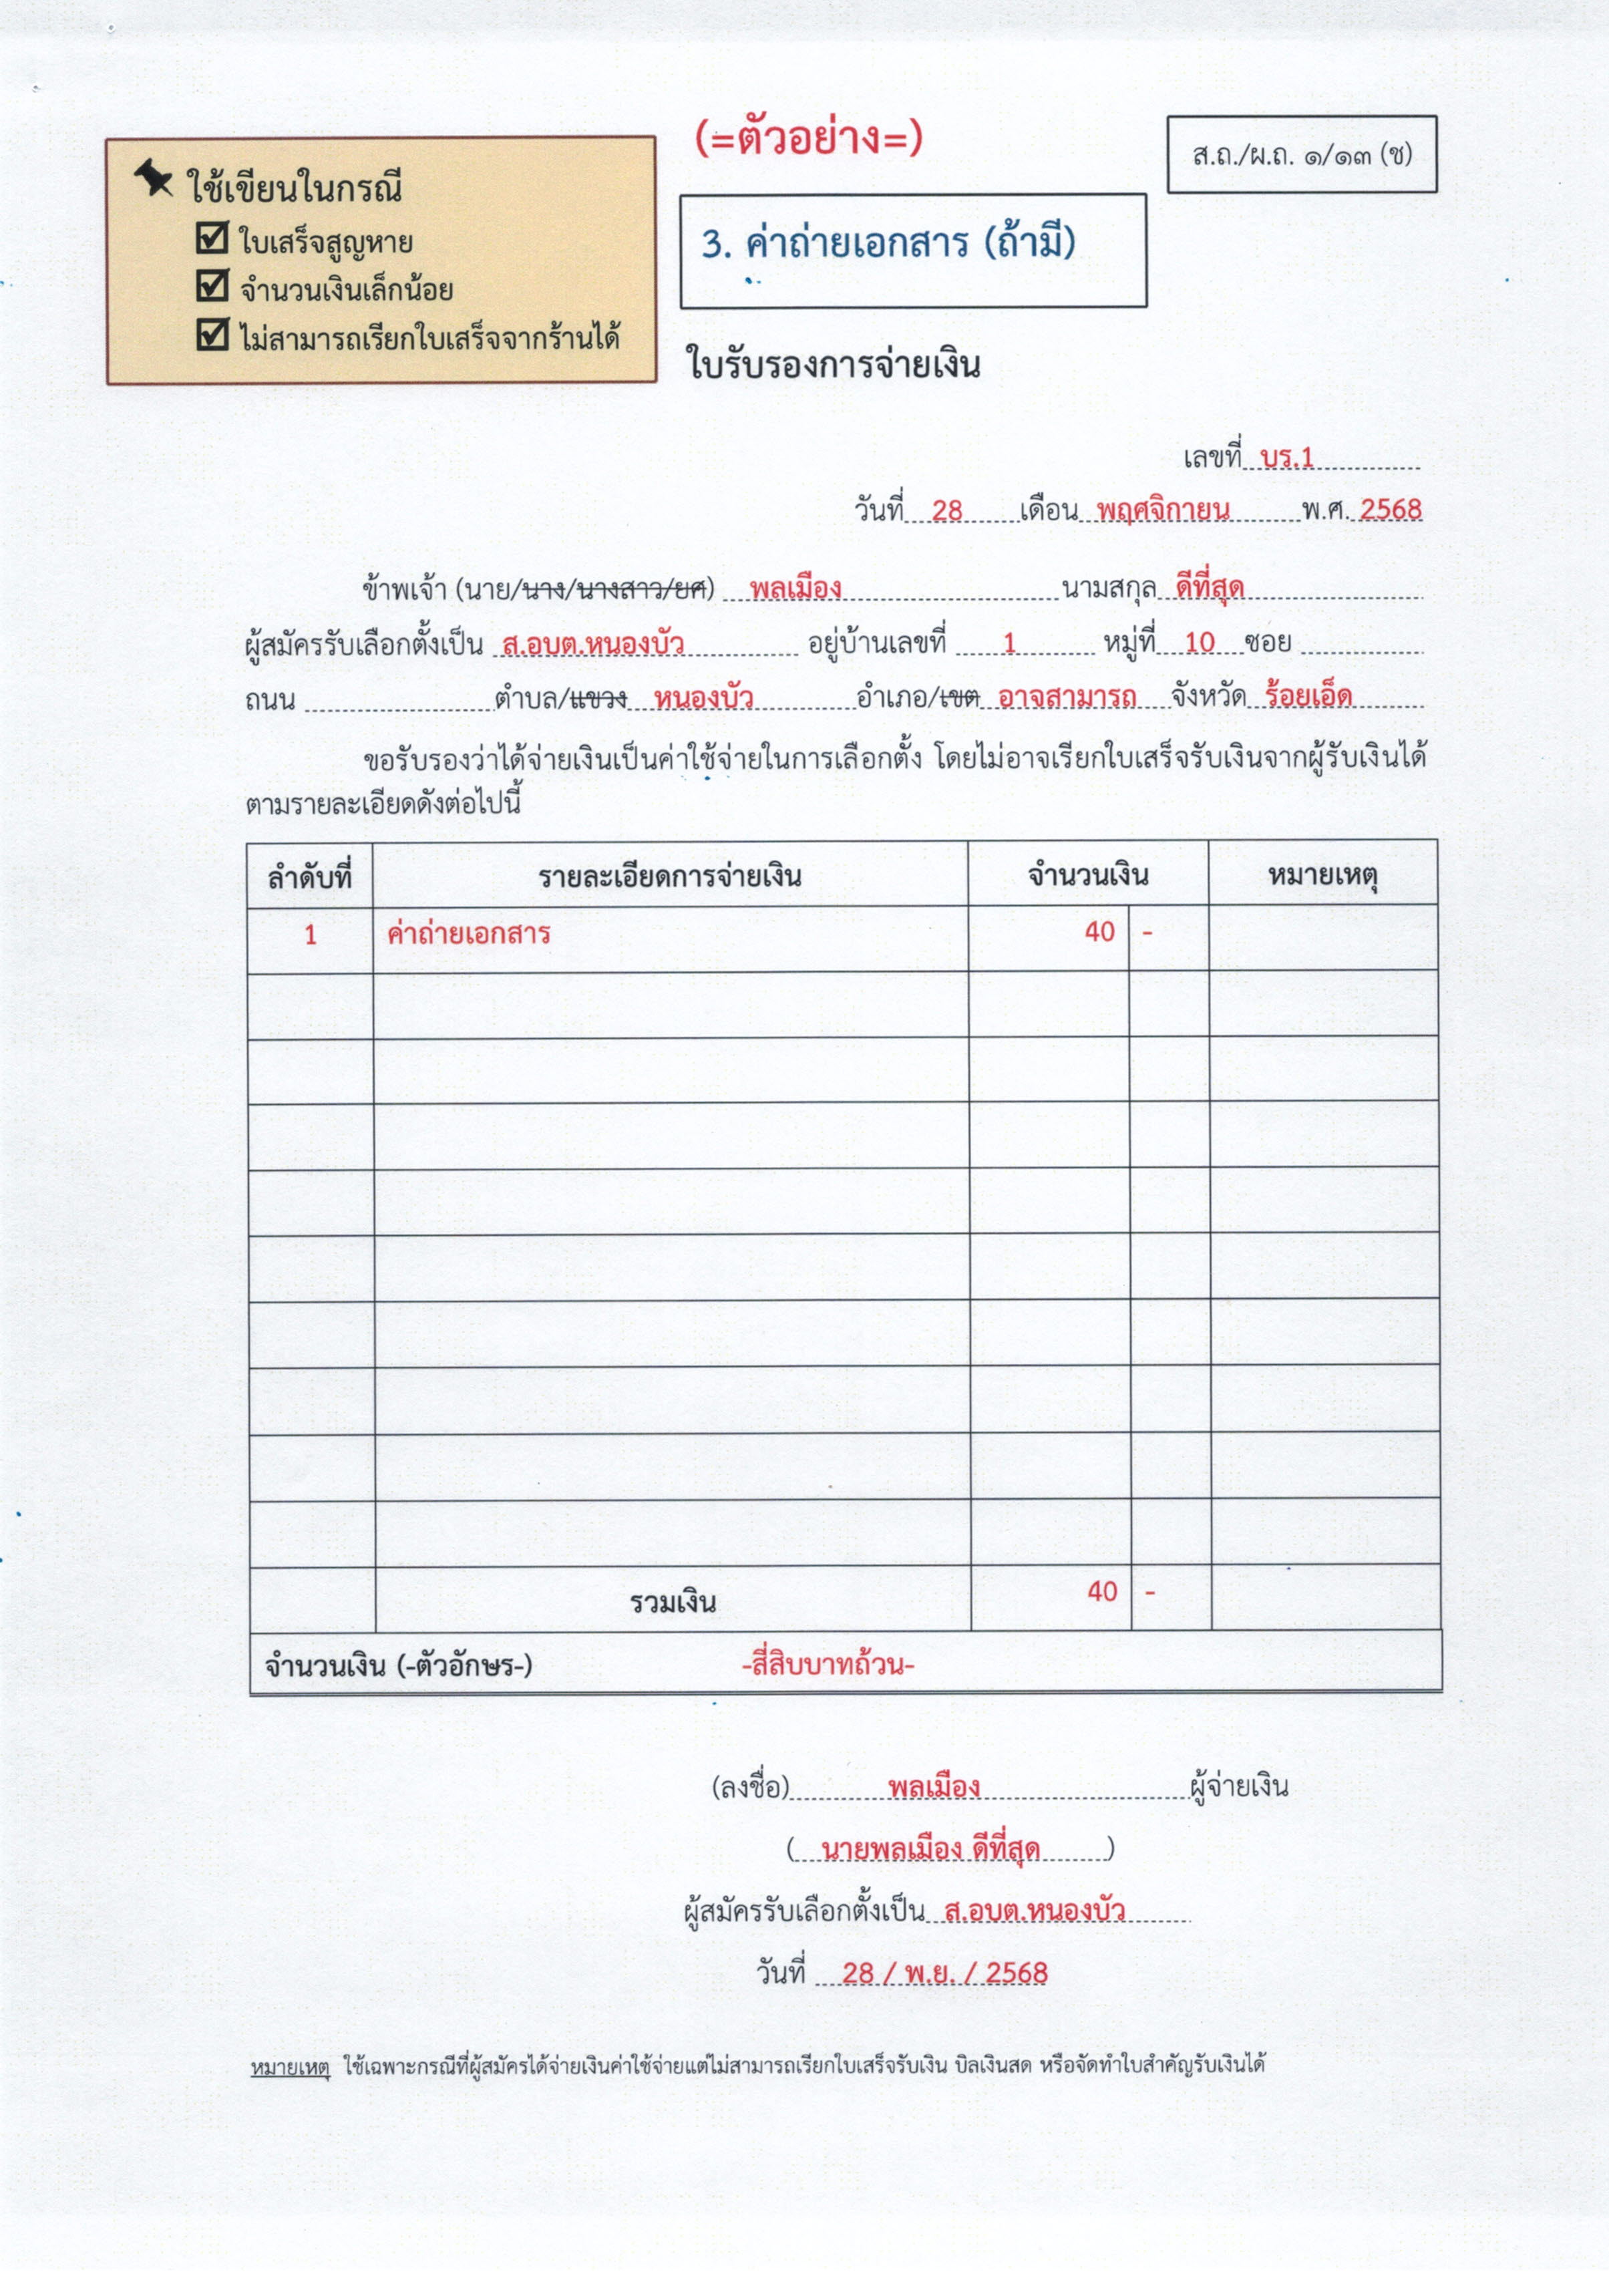 (=ตัวอย่าง=)
ส.ถ./ผ.ถ. ๑/๑๓ (ช)
ใช้เขียนในกรณี
ใบเสร็จสูญหาย
จำนวนเงินเล็กน้อย
ไม่สามารถเรียกใบเสร็จจากร้านได้
3. ค่าถ่ายเอกสาร (ถ้ามี)
ใบรับรองการจ่ายเงิน
เลขที่ บร.1
วันที่ 28 เดือน พฤศจิกายน พ.ศ. 2568
ข้าพเจ้า (นาย/นาง/นางสาว/ยศ) พลเมือง นามสกุล ดีที่สุด
ผู้สมัครรับเลือกตั้งเป็น ส.อบต.หนองบัว อยู่บ้านเลขที่ 1 หมู่ที่ 10 ซอย
ถนน ตำบล/แขวง หนองบัว อำเภอ/เขต อาจสามารถ จังหวัด ร้อยเอ็ด
ขอรับรองว่าได้จ่ายเงินเป็นค่าใช้จ่ายในการเลือกตั้ง โดยไม่อาจเรียกใบเสร็จรับเงินจากผู้รับเงินได้
ตามรายละเอียดดังต่อไปนี้
ลำดับที่ รายละเอียดการจ่ายเงิน จำนวนเงิน หมายเหตุ
1 ค่าถ่ายเอกสาร 40 -
รวมเงิน 40 -
จำนวนเงิน (-ตัวอักษร-) -สี่สิบบาทถ้วน-
(ลงชื่อ) พลเมือง ผู้จ่ายเงิน
( นายพลเมือง ดีที่สุด )
ผู้สมัครรับเลือกตั้งเป็น ส.อบต.หนองบัว
วันที่ 28 / พ.ย. / 2568
หมายเหตุ ใช้เฉพาะกรณีที่ผู้สมัครได้จ่ายเงินค่าใช้จ่ายแต่ไม่สามารถเรียกใบเสร็จรับเงิน บิลเงินสด หรือจัดทำใบสำคัญรับเงินได้